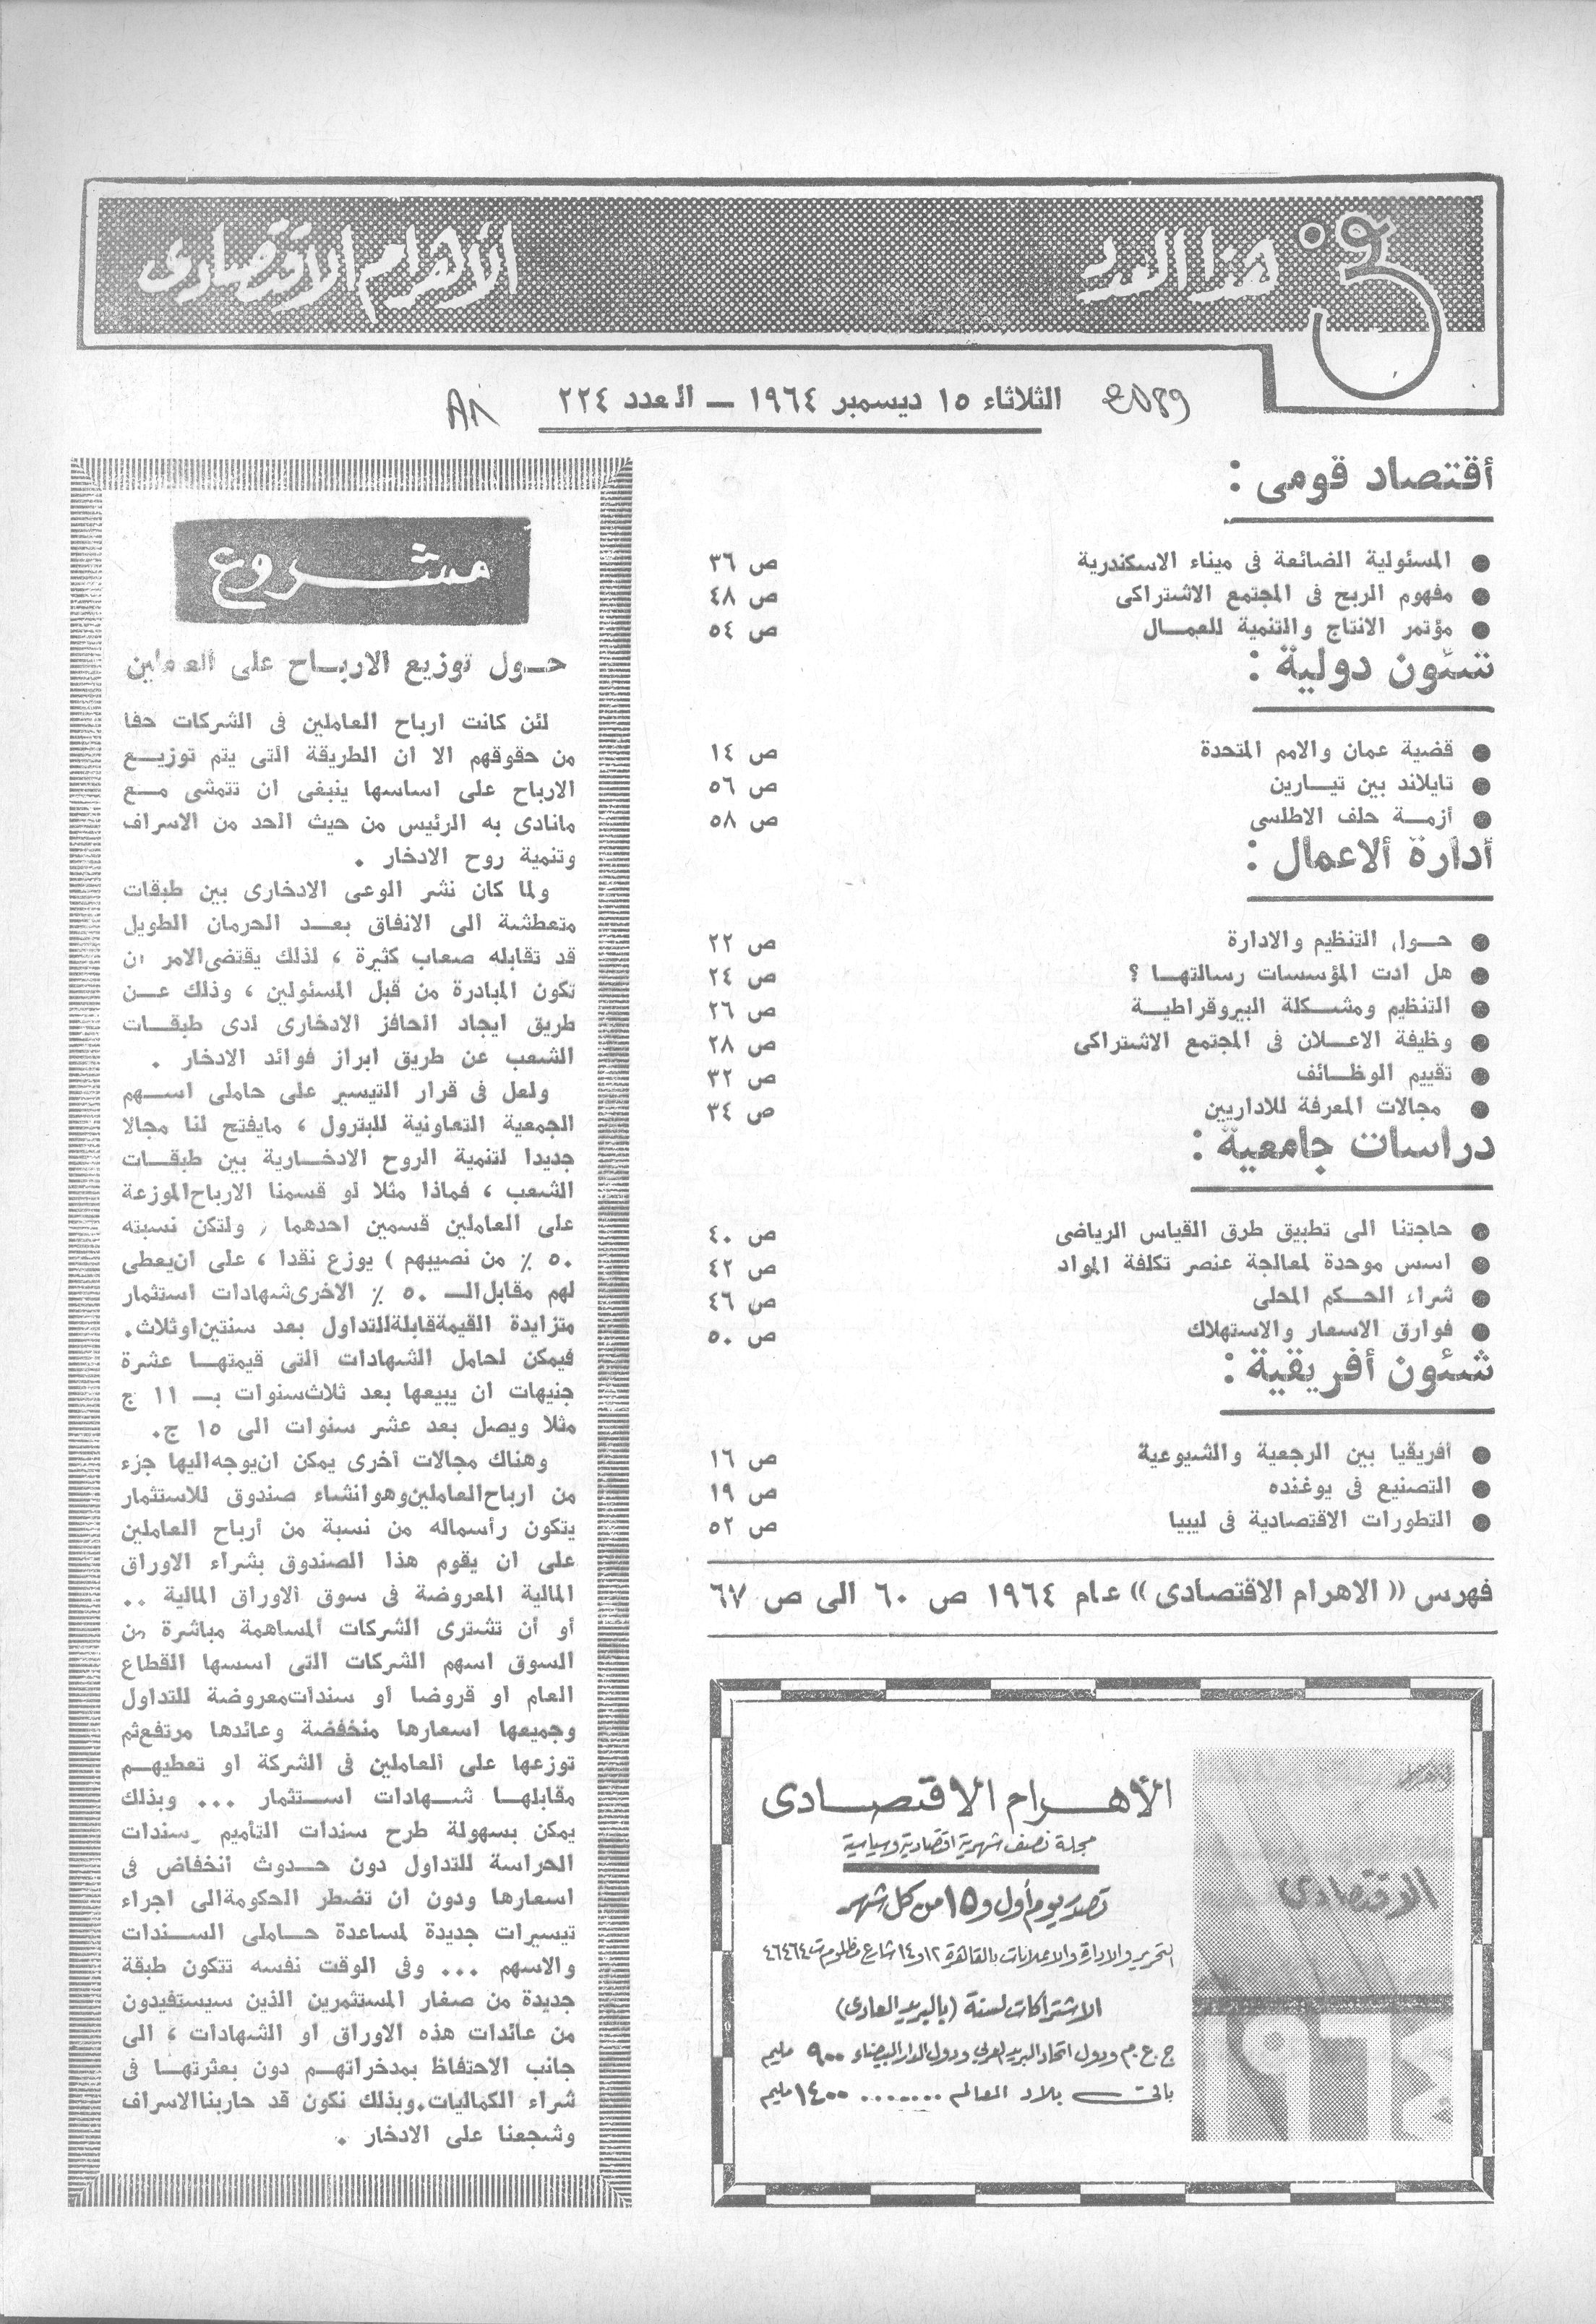 في هذا العدد
الأهرام الاقتصادى
الثلاثاء ١٥ ديسمبر ١٩٦٤ — العدد ٢٢٤
أقتصاد قومى :
● المسئولية الضائعة فى ميناء الاسكندرية ص ٣٦
● مفهوم الربح فى المجتمع الاشتراكى ص ٤٨
● مؤتمر الانتاج والتنمية للعمـــال ص ٥٤
شئون دولية :
● قضية عمان والامم المتحدة ص ١٤
● تايلاند بين تيـــارين ص ٥٦
● أزمـــة حلف الاطلسى ص ٥٨
أدارة ألاعمال :
● حـــول التنظيم والادارة ص ٢٢
● هل ادت المؤسسات رسالتهـــا ؟ ص ٢٤
● التنظيم ومشـــكلة البيروقراطيـــة ص ٢٦
● وظيفة الاعـــلان فى المجتمع الاشتراكى ص ٢٨
● تقييم الوظـــائف ص ٣٢
● مجالات المعرفة للاداريين ص ٣٤
دراسات جامعية :
● حاجتنا الى تطبيق طرق القياس الرياضى ص ٤٠
● اسس موحدة لمعالجة عنصر تكلفة المواد ص ٤٢
● شراء الحـــكم المحلى ص ٤٦
● فوارق الاسعار والاستهلاك ص ٥٠
شئون أفريقية :
● أفريقيا بين الرجعية والشيوعية ص ١٦
● التصنيع فى يوغنده ص ١٩
● التطورات الاقتصادية فى ليبيا ص ٥٢
فهرس « الاهرام الاقتصادى » عام ١٩٦٤ ص ٦٠ الى ص ٦٧
الأهـــرام الاقتصـــادى
مجلة نصف شهرية اقتصادية وسياسية
تصدر يوم أول و ١٥ من كل شهر
التحرير والادارة والاعلانات بالقاهرة ١٢ و ١٤ شارع مظلوم ت ٤٦٤٦٤
الاشتراكات لسنة (بالبريد العادى)
ج.ع.م ودول اتحاد البريد العربى ودول الدار البيضاء ٩٠٠ مليم
باقى بلاد العالم ....... ١٤٠٠ مليم
الاقتصادى
مشـــروع
حـــول توزيع الاربـــاح على العاملين
لئن كانت ارباح العاملين فى الشركات حقا
من حقوقهم الا ان الطريقة التى يتم توزيـــع
الارباح على اساسها ينبغى ان تتمشى مـــع
مانادى به الرئيس من حيث الحد من الاسراف
وتنمية روح الادخار .
ولما كان نشر الوعى الادخارى بين طبقات
متعطشة الى الانفاق بعـــد الحرمان الطويل
قد تقابله صعاب كثيرة ، لذلك يقتضى الامر ان
تكون المبادرة من قبل المسئولين ، وذلك عـــن
طريق ايجاد الحافز الادخارى لدى طبقـــات
الشعب عن طريق ابراز فوائد الادخار .
ولعل فى قرار التيسير على حاملى اســـهم
الجمعية التعاونية للبترول ، مايفتح لنا مجالا
جديدا لتنمية الروح الادخـــارية بين طبقـــات
الشعب ، فماذا مثلا لو قسمنا الارباح الموزعة
على العاملين قسمين احدهما ( ولتكن نسبته
٥٠ ٪ من نصيبهم ) يوزع نقدا ، على ان يعطى
لهم مقابل الـــ ٥٠ ٪ الاخرى شهادات استثمار
متزايدة القيمة قابلة للتداول بعد سنتين او ثلاث.
فيمكن لحامل الشهادات التى قيمتهـــا عشرة
جنيهات ان يبيعها بعد ثلاث سنوات بـــ ١١ ج
مثلا ويصل بعد عشر سنوات الى ١٥ ج.
وهناك مجالات أخرى يمكن ان يوجه اليها جزء
من ارباح العاملين وهو انشاء صندوق للاستثمار
يتكون رأسماله من نسبة من أرباح العاملين
على ان يقوم هذا الصندوق بشراء الاوراق
المالية المعروضة فى سوق الاوراق المالية ..
أو أن تشترى الشركات المساهمة مباشرة من
السوق اسهم الشركات التى اسسها القطاع
العام او قروضا او سندات معروضة للتداول
وجميعها اسعارها منخفضة وعائدها مرتفع ثم
توزعها على العاملين فى الشركة او تعطيهـــم
مقابلهـــا شـــهادات اســـتثمار ... وبذلك
يمكن بسهولة طرح سندات التأميم وسندات
الحراسة للتداول دون حـــدوث انخفاض فى
اسعارها ودون ان تضطر الحكومة الى اجراء
تيسيرات جديدة لمساعدة حـــاملى الســـندات
والاسهم ... وفى الوقت نفسه تتكون طبقة
جديدة من صغار المستثمرين الذين سيستفيدون
من عائدات هذه الاوراق او الشهادات ، الى
جانب الاحتفاظ بمدخراتهـــم دون بعثرتهـــا فى
شراء الكماليات. وبذلك نكون قد حاربنا الاسراف
وشجعنا على الادخار .